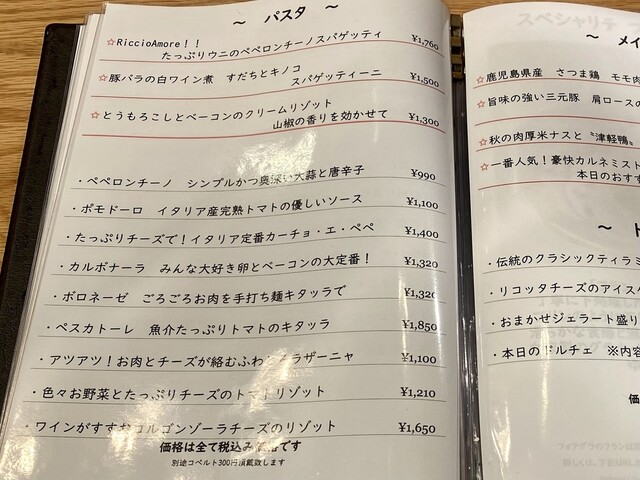 ～ パスタ ～
☆RiccioAmore！！
たっぷりウニのペペロンチーノスパゲッティ ¥1,760
☆豚バラの白ワイン煮 すだちとキノコ
スパゲッティーニ ¥1,500
☆とうもろこしとベーコンのクリームリゾット
山椒の香りを効かせて ¥1,300
・ペペロンチーノ シンプルかつ奥深い大蒜と唐辛子 ¥990
・ポモドーロ イタリア産完熟トマトの優しいソース ¥1,100
・たっぷりチーズで！イタリア定番カーチョ・エ・ペペ ¥1,400
・カルボナーラ みんな大好き卵とベーコンの大定番！ ¥1,320
・ボロネーゼ ごろごろお肉を手打ち麺キタッラで ¥1,320
・ペスカトーレ 魚介たっぷりトマトのキタッラ ¥1,850
・アツアツ！お肉とチーズが絡むふわ ラザーニャ ¥1,100
・色々お野菜とたっぷりチーズのトマトリゾット ¥1,210
・ワインがすすむゴルゴンゾーラチーズのリゾット ¥1,650
価格は全て税込み価格です
別途コペルト300円頂戴致します
スペシャリテ
～ メイ
☆鹿児島県産 さつま鶏 モモ肉
☆旨味の強い三元豚 肩ロースの
☆秋の肉厚米ナスと〝津軽鴨〟
☆一番人気！豪快カルネミスト
本日のおす
～ ド
・伝統のクラシックティラミ
・リコッタチーズのアイスケ
・おまかせジェラート盛り
・本日のドルチェ ※内容
価